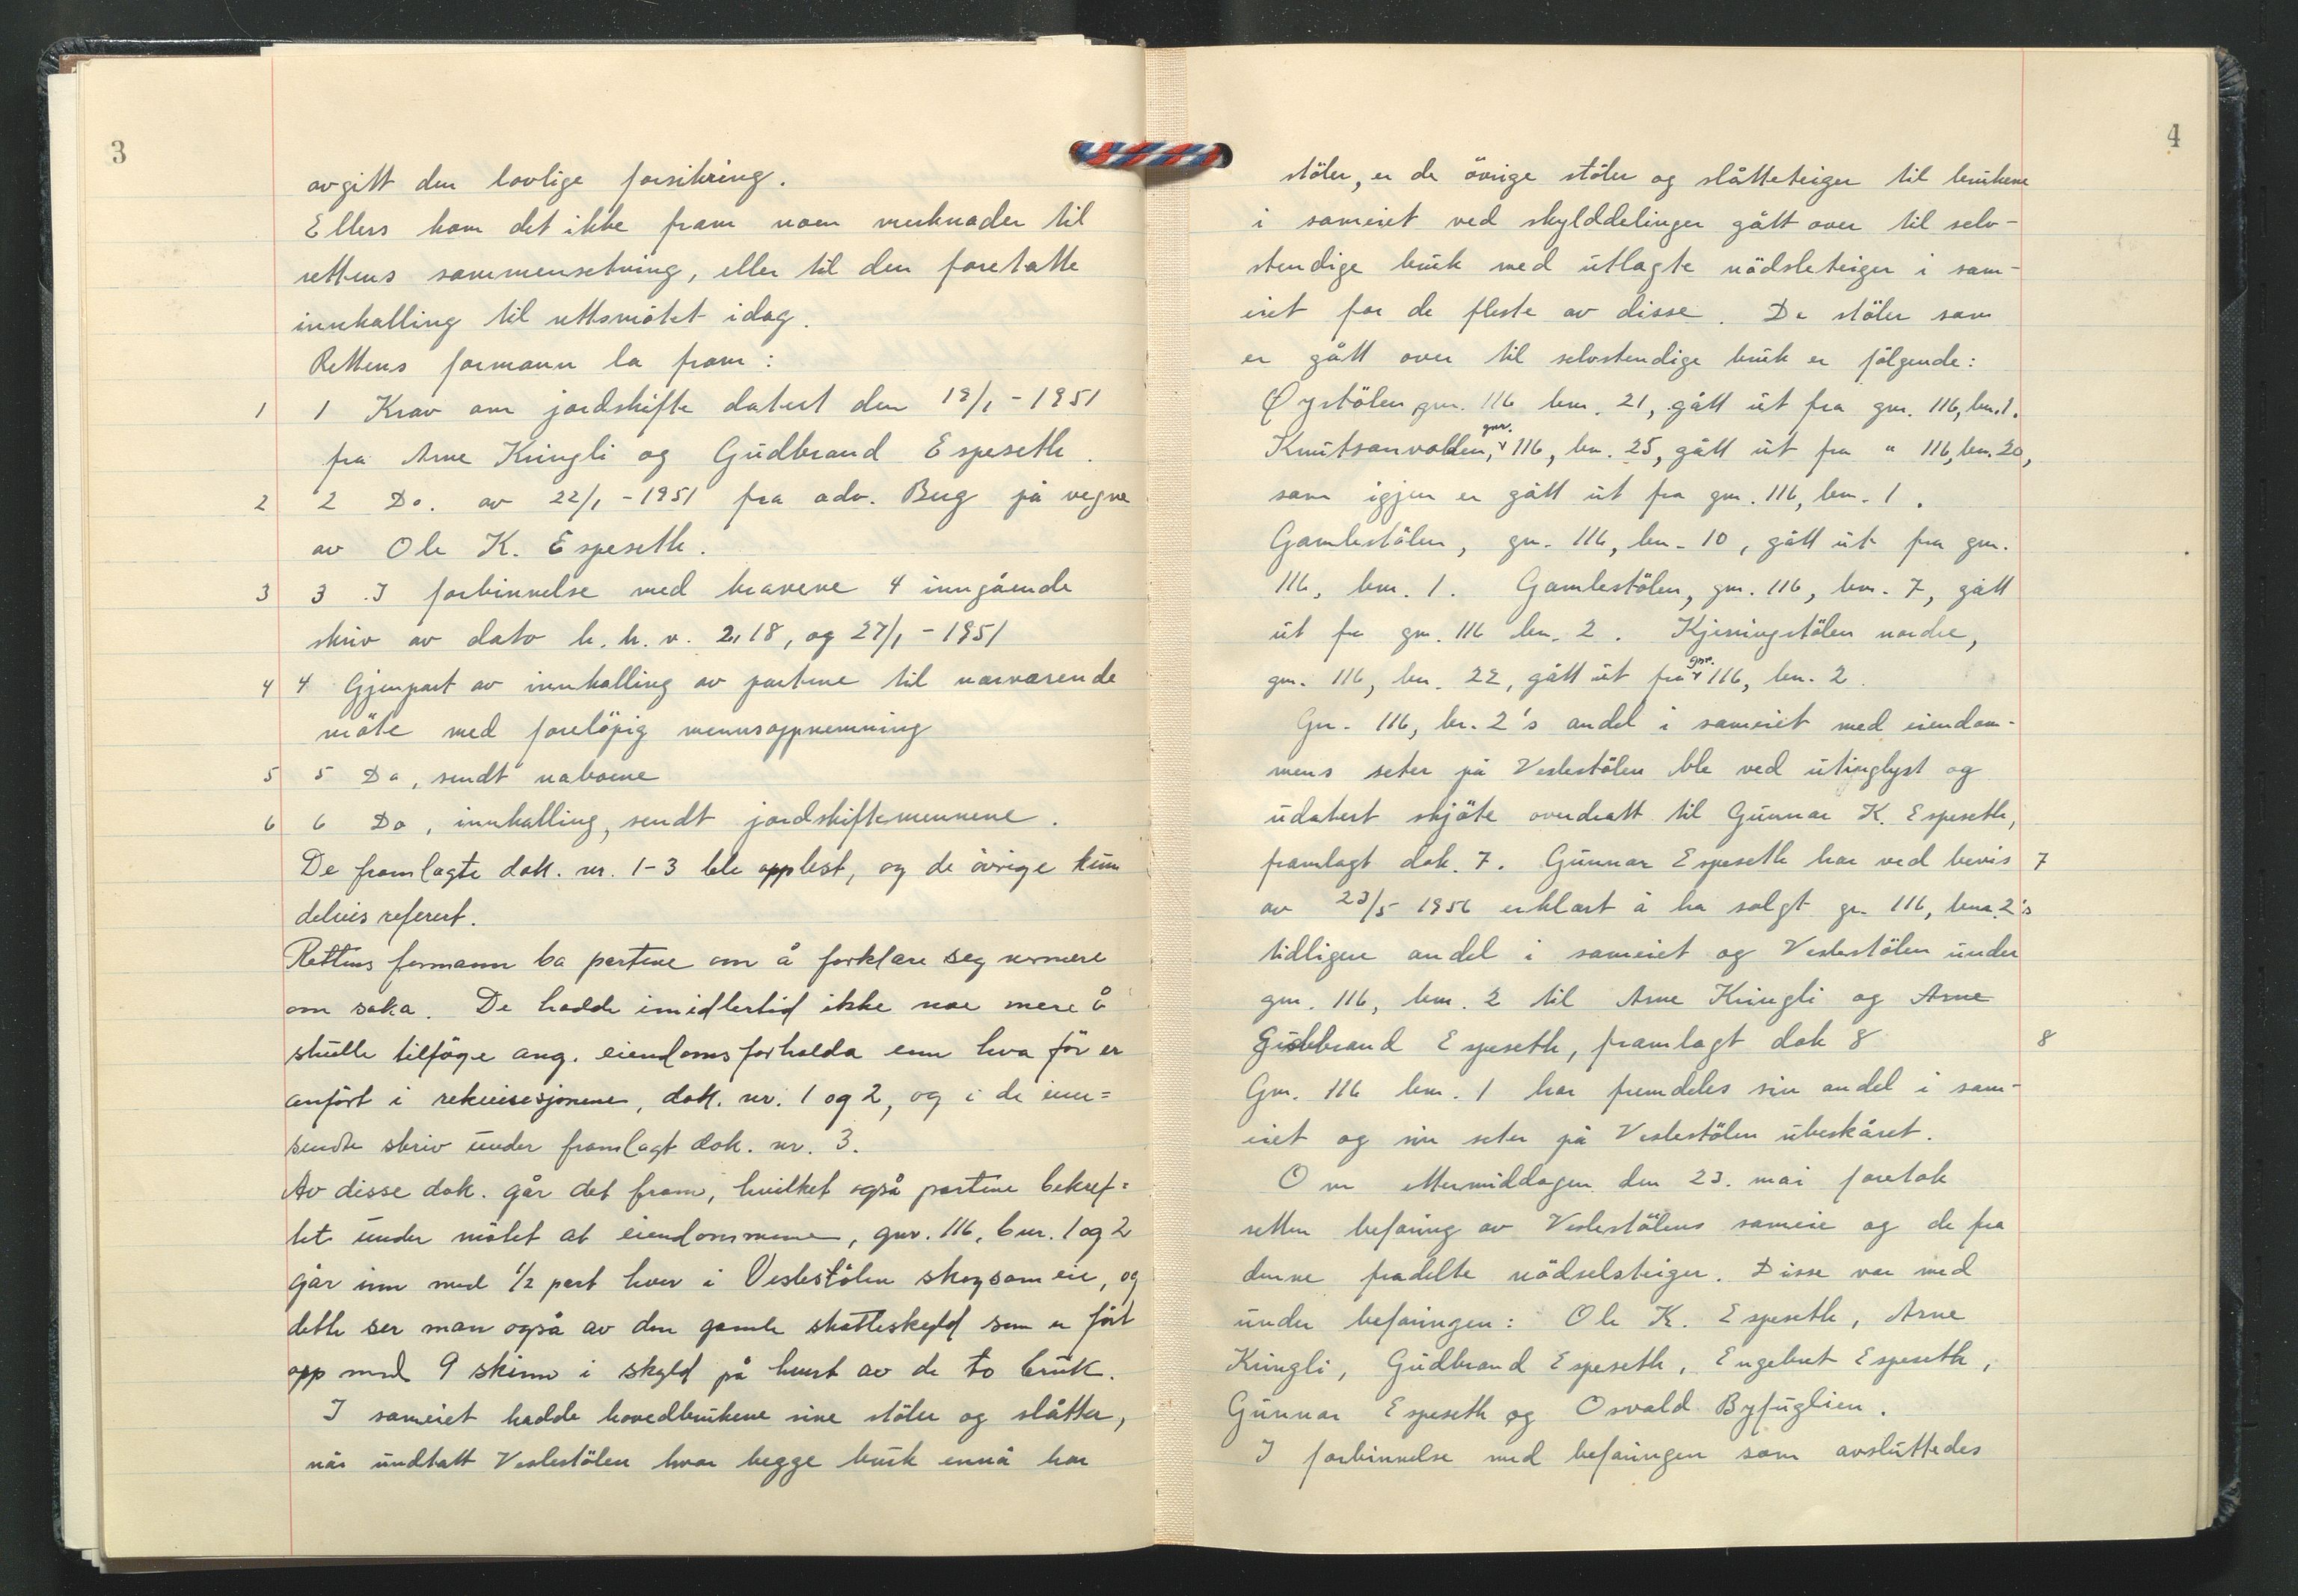 3
avgitt den lovlige forsikring.
Ellers kom det ikke fram noen merknader til
rettens sammensetning, eller til den foretatte
innkalling til rettsmötet idag.
Rettens formann la fram:
1 1 Krav om jordskifte datert den 19/1 - 1951
fra Arne Kringli og Gudbrand Espeseth.
2 2 Do. av 22/1 - 1951 fra adv. Berg på vegne
av Ole K. Espeseth.
3 3 I forbinnelse med kravene 4 inngående
skriv av dato h.h.v. 2, 18, og 27/1 - 1951
4 4 Gjenpart av innkalling av partene til nærværende
möte med forelöpig mennsoppnemning
5 5 Do, sendt naboene
6 6 Do, innkalling, sendt jordskiftemennene.
De framlagte dok. nr. 1-3 ble opplest, og de övrige kun
delvis referert.
Rettens formann ba partene om å forklare seg nærmere
om saka. De hadde imidlertid ikke noe mere å
skulle tilföye ang. eiendomsforholda enn hva för er
anfört i rekvisisjonene, dok. nr. 1 og 2, og i de inn=
sendte skriv under framlagt dok. nr. 3.
Av disse dok. går det fram, hvilket også partene bekref=
tet under mötet at eiendommene, gnr. 116, bnr. 1 og 2
går inn med 1/2 part hver i Veslestölen skogsameie, og
dette ser man også av den gamle skatteskyld som er fört
opp med 9 skinn i skyld på hvert av de to bruk.
I sameiet hadde hovedbrukene sine stöler og slåtter,
når undtatt Veslestölen hvor begge bruk ennå har
4
stöler, er de övrige stöler og slåtteteiger til brukene
i sameiet ved skylddelinger gått over til selv-
stendige bruk med utlagte nödsleteiger i sam-
eiet for de fleste av disse. De stöler som
er gått over til selvstendige bruk er fölgende:
Öystölen gnr. 116 bnr. 21, gått ut fra gnr. 116, bnr. 1.
Knutsonvollen, gnr. 116, bnr. 25, gått ut fra " 116, bnr. 20,
som igjen er gått ut fra gnr. 116, bnr. 1.
Gamlestölen, gnr. 116, bnr. 10, gått ut fra gnr.
116, bnr. 1. Gamlestölen, gnr. 116, bnr. 7, gått
ut fra gnr. 116 bnr. 2. Kjerringstölen nordre,
gnr. 116, bnr. 22, gått ut fra gnr. 116, bnr. 2.
Gnr. 116, bnr. 2's andel i sameiet med eiendom-
mens seter på Veslestölen ble ved utinglyst og
udatert skjöte overdratt til Gunnar K. Espeseth,
framlagt dok. 7. Gunnar Espeseth har ved bevis 7
av 23/5 1956 erklært å ha solgt gnr. 116, bnr. 2's
tidligere andel i sameiet og Veslestölen under
gnr. 116, bnr. 2 til Arne Kringli og Arne
Gudbrand Espeseth, framlagt dok 8 8
Gnr. 116 bnr. 1 har fremdeles sin andel i sam-
eiet og sin seter på Veslestölen ubeskåret.
Om ettermiddagen den 23. mai foretok
retten befaring av Veslestölens sameie og de fra
denne fradelte nödselsteiger. Disse var med
under befaringen: Ole K. Espeseth, Arne
Kringli, Gudbrand Espeseth, Engebret Espeseth,
Gunnar Espeseth og Osvald Byfuglien.
I forbinnelse med befaringen som avsluttedes